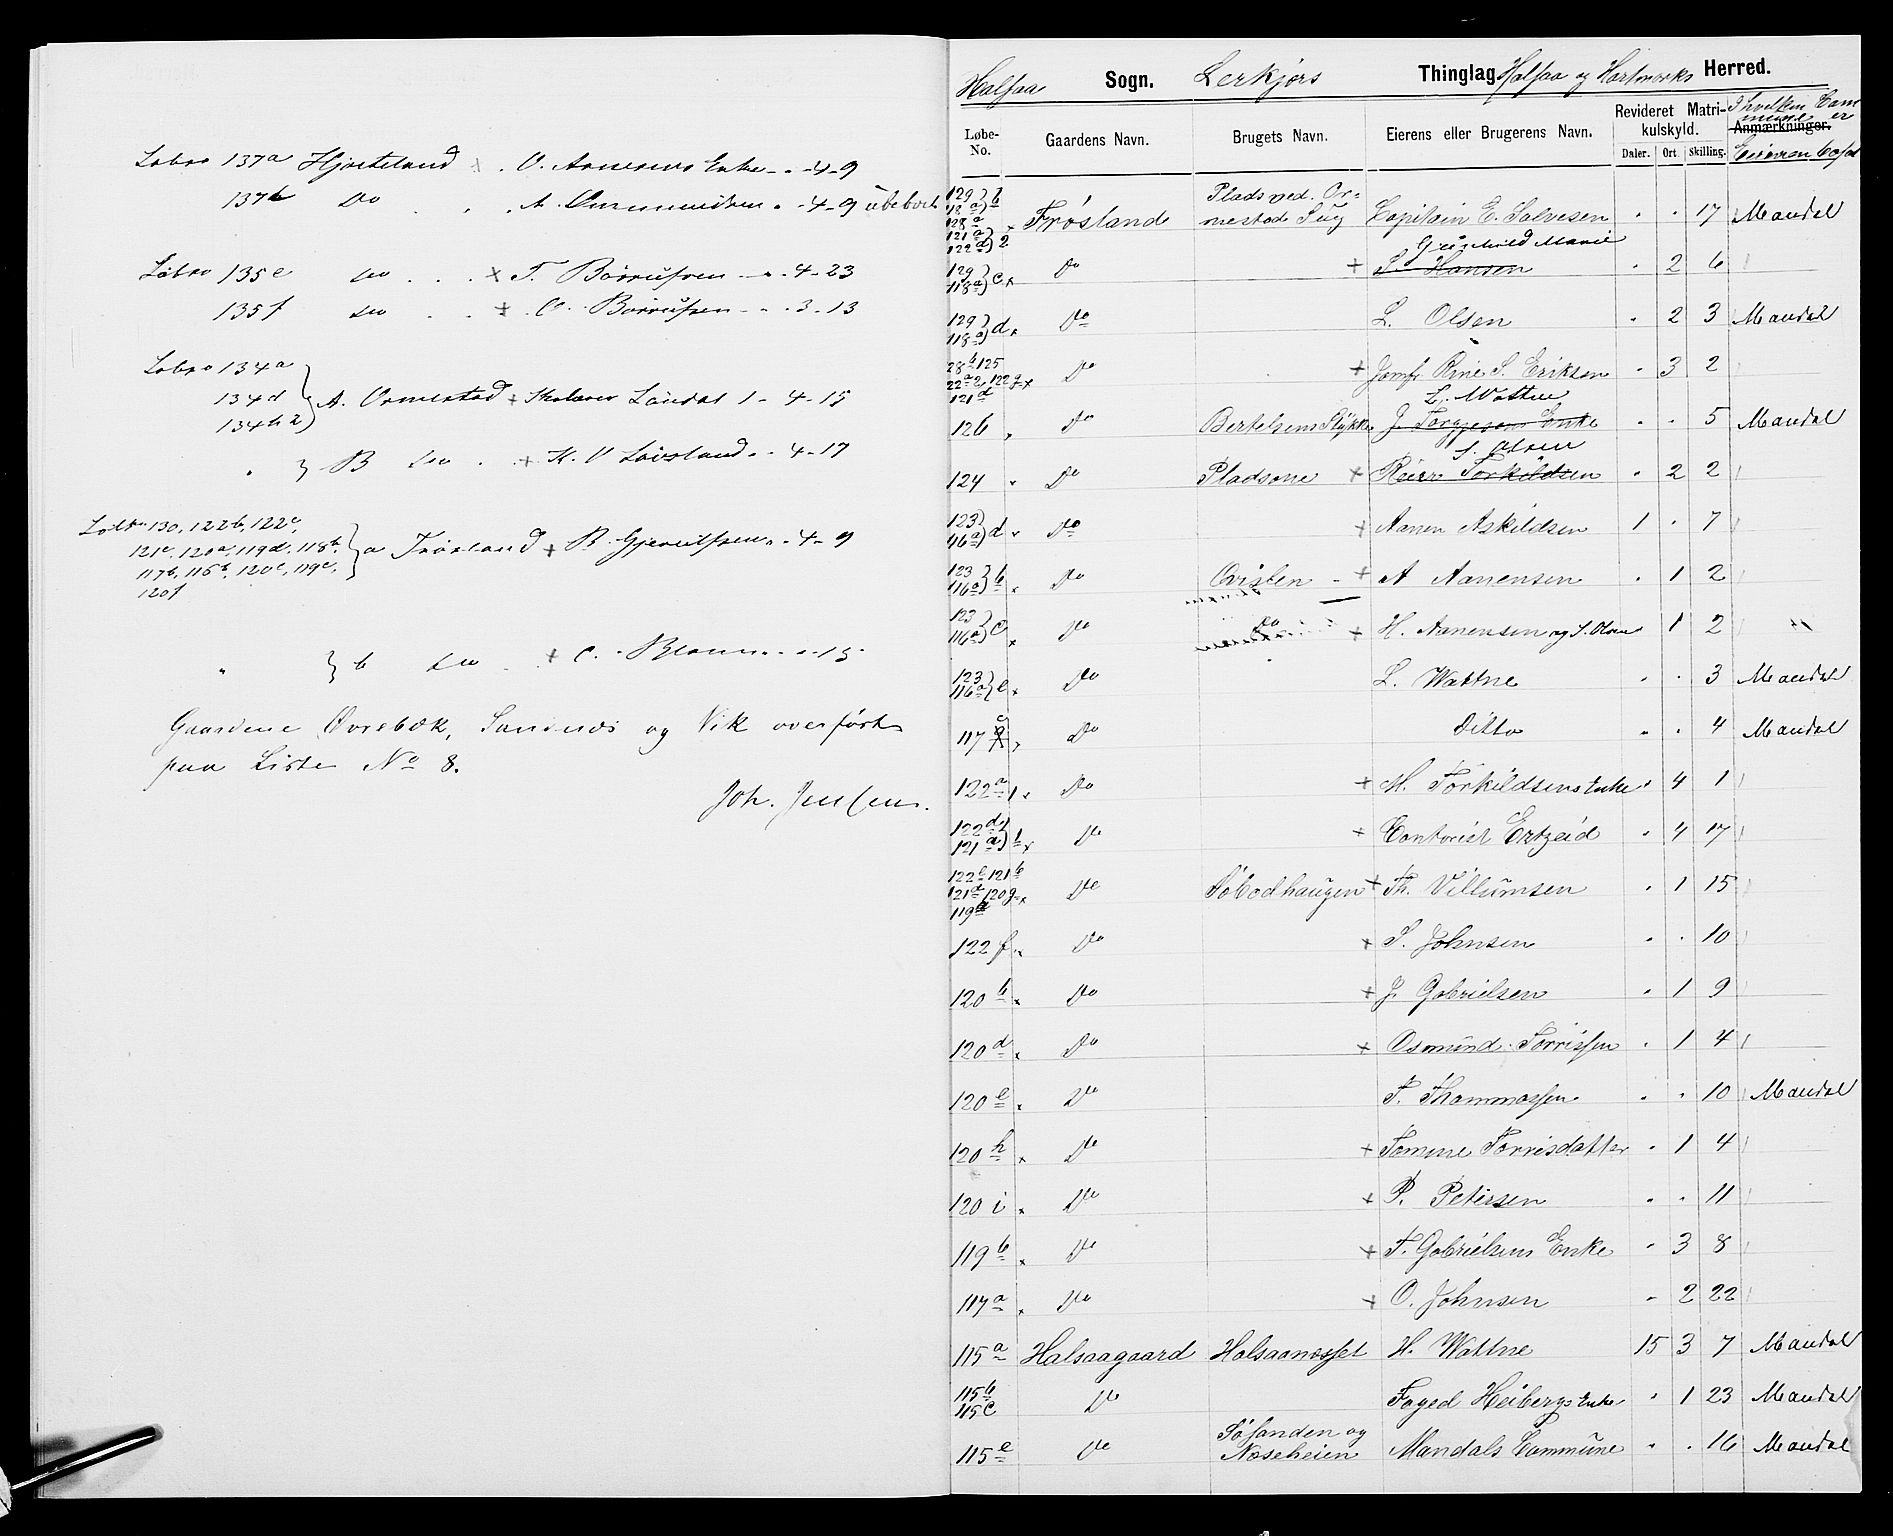 Løbno 137a Hjorteland × . O. Aanensens Enke - . - 4 - 9
137b Do . . . A. Aanensen . - 4 - 9 ubeboet
Løbno 135e do . . . × T. Børrufsen - . - 4 - 23
135f do . . × O. Børrufsen - . - 3 - 13
Løbno 134a
134d } A. Ormestad × Skolærer Løvdal 1 - 4 - 15
134h2
" } B do . . × K. O Løvsland . - 4 - 17
Løbno 130, 122b, 122c,
121c, 120a, 119d, 118b, } a Frøsland × B. Gjerulfsen . - 4 - 9
117b, 116b, 120c, 119c,
120f
" } b do . . × C. Blom . - . - 15
Gaardene Øvrebæk, Sandnæs og Vik overført
paa Liste No 8.
Joh. Jensen.
Halsaa Sogn. Lerkjørs Thinglag Halsaa og Hartmarks Herred.
Løbe-No. Gaardens Navn. Brugets Navn. Eierens eller Brugerens Navn. Revideret Matrikulskyld. Daler. Ort. Skilling. Anmærkninger. I hvilken Commune er Eieren bosat
129 118a } b 128a 121a 122d } 2 Frøsland Plads ved Ormestad Sug Capitain E. Salvesen " " 17 Mandal
129 118a } c × Do + S. Hansen Gunhild Marie " 2 6
129 118a } d × Do L. Olsen " 2 3 Mandal
28b 125 22a2 122g 121d × Do + Jomfr Rine S. Eriksen " 3 2
126 × Do Bertelsens Stykke J. Torgjesens Enke L. Wattne " " 5 Mandal
124 " Do Pladsene + Reier Torkildsen S. Olsen " 2 2
123 46a } d × Do + Aanen Askildsen 1 " 7
123 116a } b × Do Qvisten - + A Aanensen " 1 2
123 116a } c × Do Do + H. Aanensen og S. Olsen " 1 2
123 116a } e × Do L. Wattne " " 3 Mandal
117c × Do Ditto " " 4 Mandal
122a1 × Do + M. Torkildsens Enke " 4 1
122d 121a } 1 × Do + Contorist Ertzeid " 4 17
122e 121b 121d 120g 119a × Do Søbodhaugen + Th. Villumsen " 1 15
122f × Do + S. Johnsen " " 10
120b × Do + J. Gabrielsen " 1 9
120d × Do + Osmund Torrissen " 1 4
120e × Do T. Thommassen " " 10 Mandal
120h × Do + Tomine Torrisdatter " 1 4
120i × Do + P. Petersen " " 11
119b × Do + T. Gabrielsens Enke " 3 8
117a × Do + O. Johnsen " 2 22
115a Halsaagaard Halsaanæsset H. Wattne 15 3 7 Mandal
115b 115c Do Foged Heibergs Enke " 1 23 Mandal
115e Do Søsanden og Næseheien Mandals Commune " " 16 Mandal